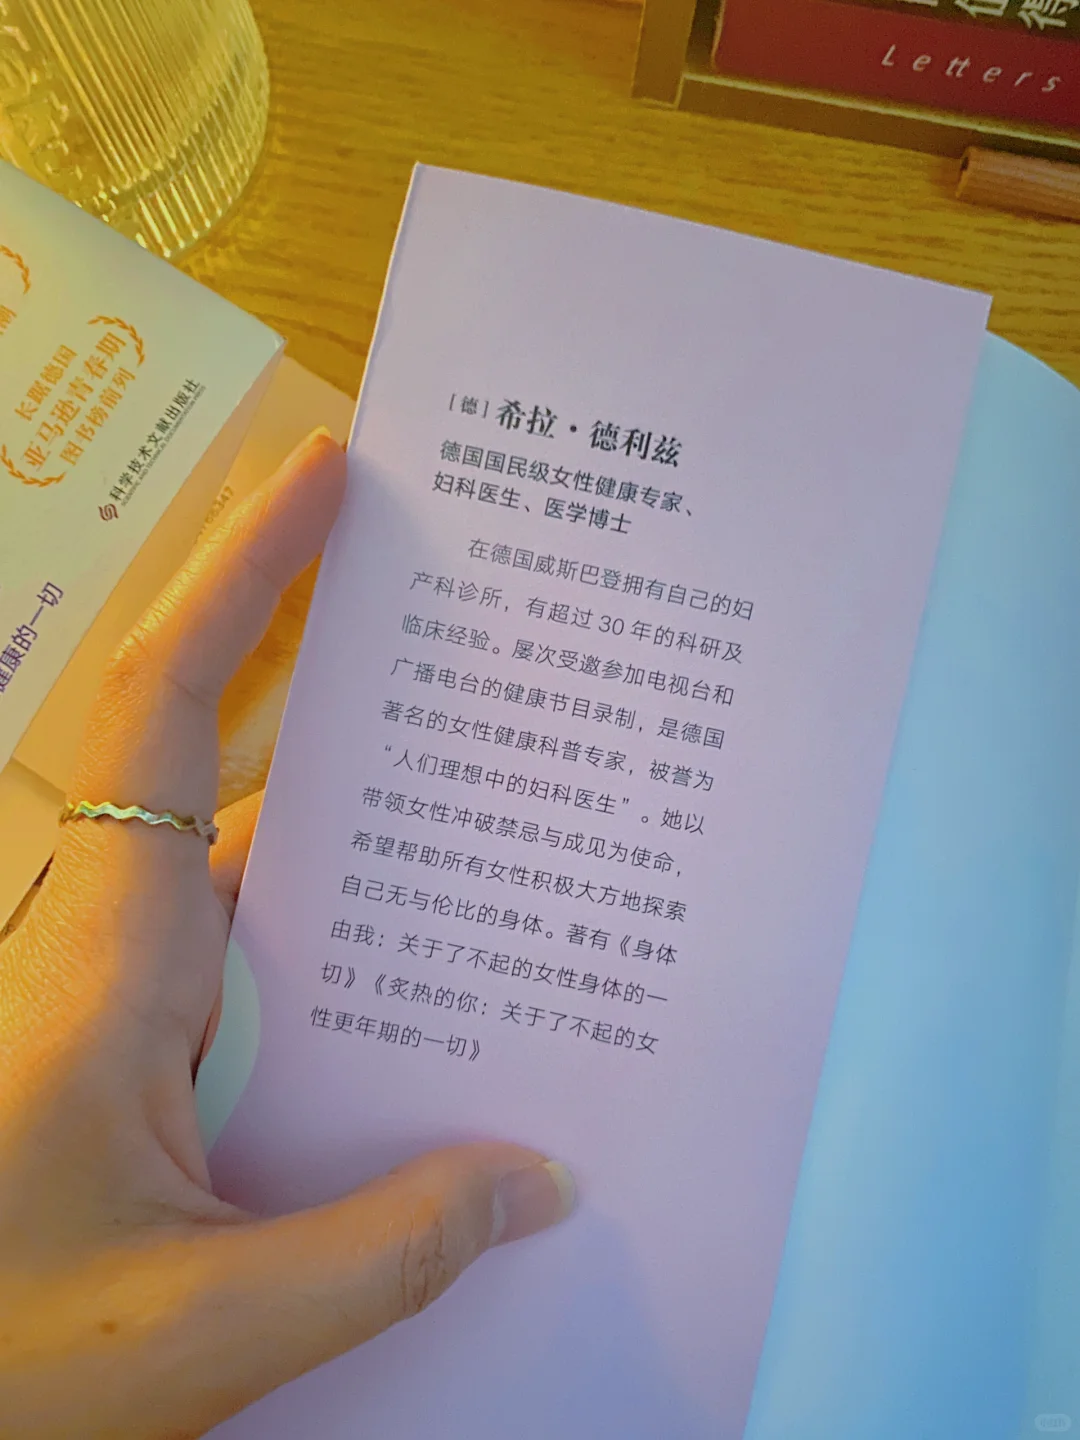 得
Letters
长踞德国
亚马逊青春期
图书榜前列
科学技术文献出版社
SCIENTIFIC AND TECHNICAL DOCUMENTATION PRESS
健康的一切
[德]希拉·德利兹
德国国民级女性健康专家、
妇科医生、医学博士
在德国威斯巴登拥有自己的妇
产科诊所，有超过 30 年的科研及
临床经验。屡次受邀参加电视台和
广播电台的健康节目录制，是德国
著名的女性健康科普专家，被誉为
“人们理想中的妇科医生”。她以
带领女性冲破禁忌与成见为使命，
希望帮助所有女性积极大方地探索
自己无与伦比的身体。著有《身体
由我：关于了不起的女性身体的一
切》《炙热的你：关于了不起的女
性更年期的一切》